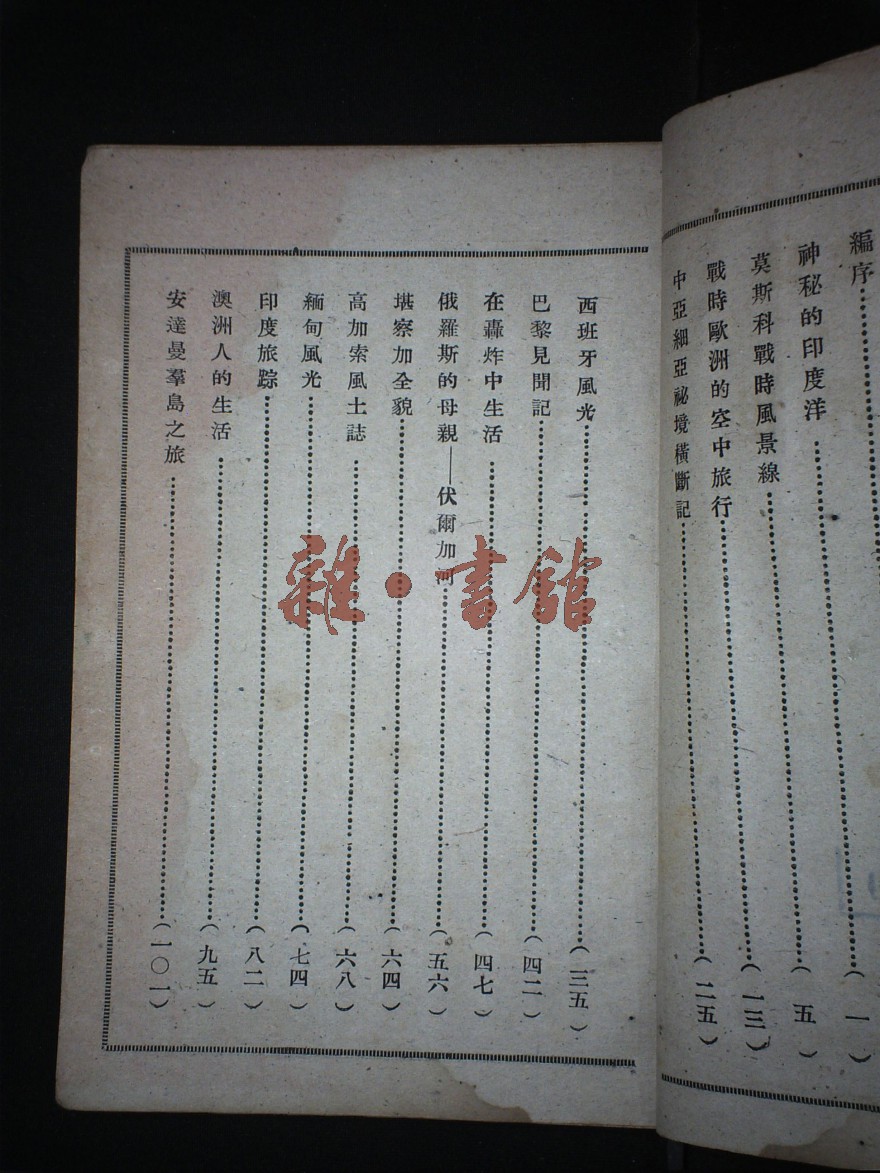 編序
神秘的印度洋………(一)
莫斯科戰時風景線………(五)
戰時歐洲的空中旅行………(一三)
中亞細亞祕境橫斷記………(二五)
西班牙風光………(三五)
巴黎見聞記………(四二)
在轟炸中生活………(四七)
俄羅斯的母親——伏爾加河………(五六)
堪察加全貌………(六四)
高加索風土誌………(六八)
緬甸風光………(七四)
印度旅踪………(八二)
澳洲人的生活………(九五)
安達曼羣島之旅………(一〇一)
雜·書館